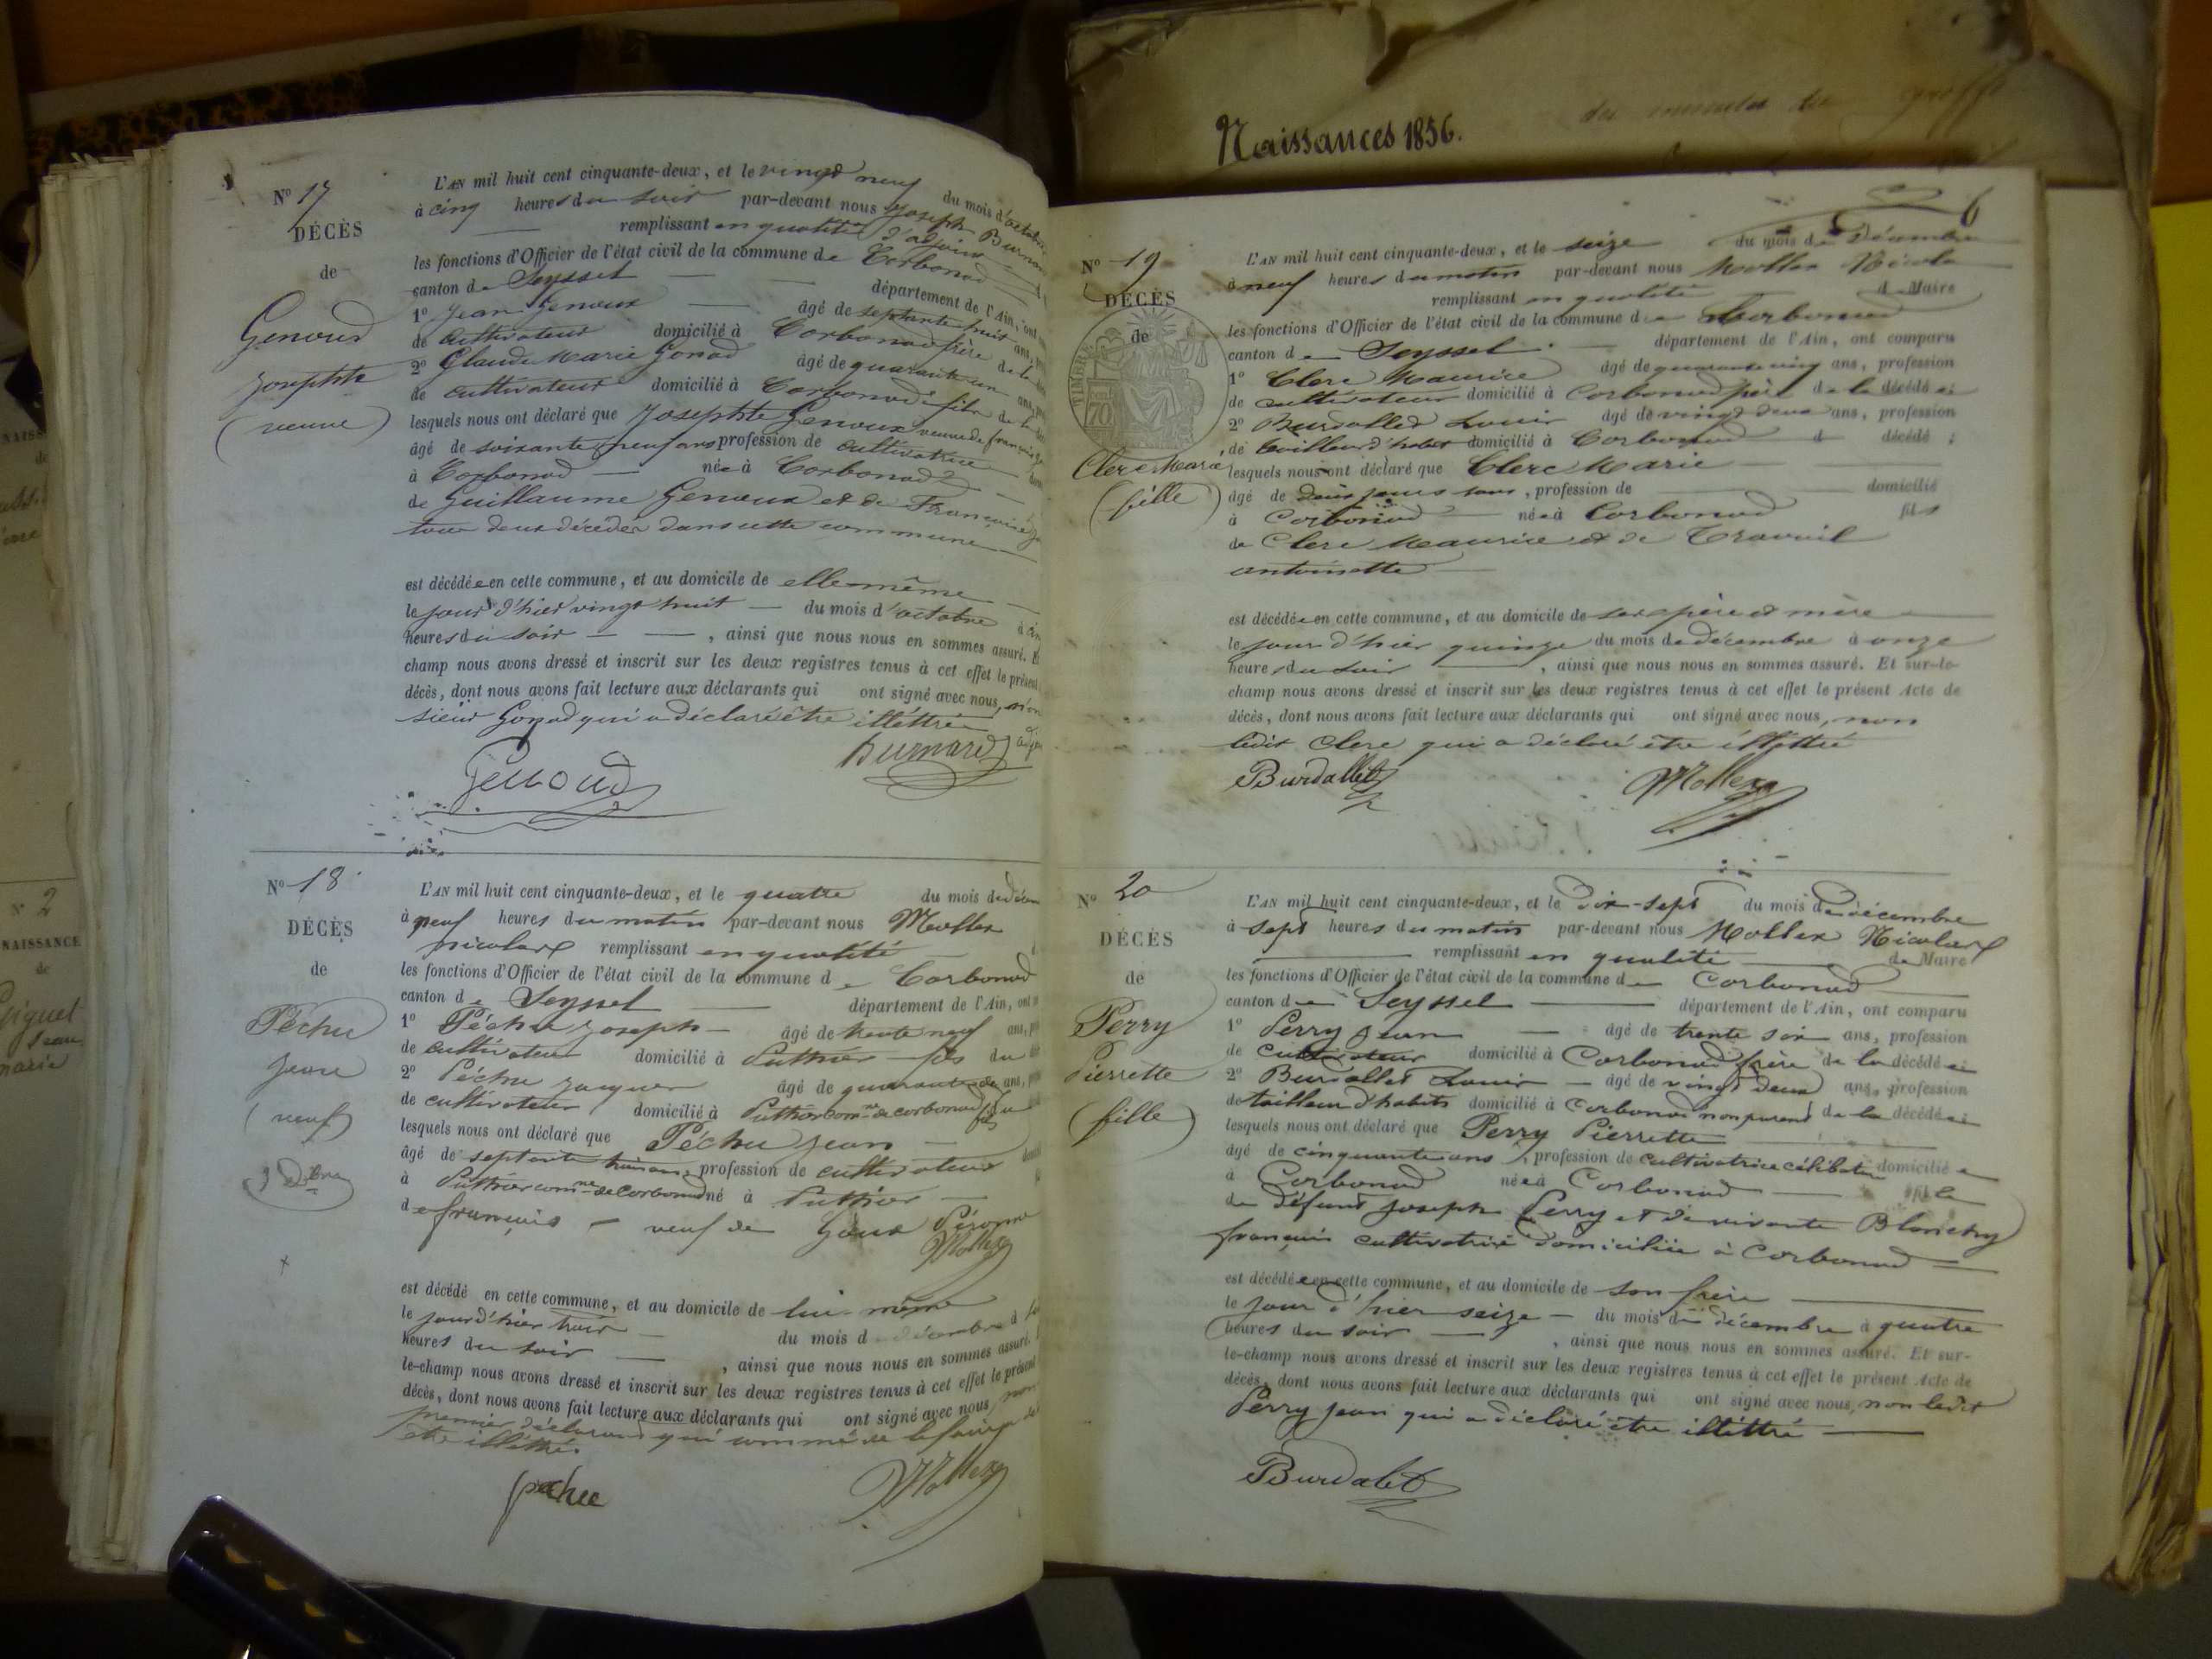 Naissances 1856.
N° 17
DÉCÈS
de
Genoud
Josephte
(veuve)
L'AN mil huit cent cinquante-deux, et le vingt neuf du mois d'octobre
à cinq heures du soir par-devant nous Joseph Burnard
remplissant en qualité d'adjoint
les fonctions d'Officier de l'état civil de la commune de Corbonod
canton de Seyssel département de l'Ain, ont
1° Jean Genoux âgé de septante huit ans,
de cultivateur domicilié à Corbonod frère de la
2° Claude Marie Gonod âgé de quarante un ans,
de cultivateur domicilié à Corbonod fils de la
lesquels nous ont déclaré que Josephte Genoux veuve de françois
âgé de soixante neuf ans profession de cultivatrice
à Corbonod née à Corbonod
de Guillaume Genoux et de Françoise
tous deux décédés dans cette commune
est décédée en cette commune, et au domicile de elle-même
le jour d'hier vingt huit du mois d'octobre à
heures du soir , ainsi que nous nous en sommes assuré.
champ nous avons dressé et inscrit sur les deux registres tenus à cet effet le présent
décès, dont nous avons fait lecture aux déclarants qui ont signé avec nous,
sieur Gonod qui a déclaré être illéttré
Genoud
Burnard
N° 18
DÉCÈS
de
Péchu
Jean
(veuf)
3 Xbre
L'AN mil huit cent cinquante-deux, et le quatre du mois de
à neuf heures du matin par-devant nous Mollex
nicolas remplissant en qualité
les fonctions d'Officier de l'état civil de la commune de Corbonod
canton de Seyssel département de l'Ain, ont
1° Péchu Joseph âgé de trente neuf ans,
de cultivateur domicilié à Puthier fils du
2° Péchu Jacques âgé de quarante ans,
de cultivateur domicilié à Puthier com.ne de corbonod
lesquels nous ont déclaré que Péchu Jean
âgé de septante profession de cultivateur
à Puthier com.ne de Corbonod né à Puthier
de françois veuf de
Mollex
est décédé en cette commune, et au domicile de lui-même
le jour d'hier trois du mois de décembre à
heures du soir , ainsi que nous nous en sommes assuré.
le-champ nous avons dressé et inscrit sur les deux registres tenus à cet effet le présent
décès, dont nous avons fait lecture aux déclarants qui ont signé avec nous, non
premier déclarant qui sommé de le faire
être illéttré.
pechu
Mollex
6
N° 19
DÉCÈS
de
Clerc Marie
(fille)
L'AN mil huit cent cinquante-deux, et le seize du mois de Décembre
à neuf heures du matin par-devant nous Mollex Nicolas
remplissant en qualité de Maire
les fonctions d'Officier de l'état civil de la commune de Corbonod
canton de Seyssel département de l'Ain, ont comparu
1° Clerc Maurice âgé de quarante cinq ans, profession
de cultivateur domicilié à Corbonod père de la décédée
2° Burdallet Louis âgé de vingt deux ans, profession
de tailleur d'habits domicilié à Corbonod d décédé ;
lesquels nous ont déclaré que Clerc Marie
âgé de deux jours , profession de domicilié
à Corbonod née à Corbonod fil
de Clerc Maurice et de Travail
antoinette
est décédée en cette commune, et au domicile de ses père et mère
le jour d'hier quinze du mois de décembre à onze
heures du soir , ainsi que nous nous en sommes assuré. Et sur-le-
champ nous avons dressé et inscrit sur les deux registres tenus à cet effet le présent Acte de
décès, dont nous avons fait lecture aux déclarants qui ont signé avec nous, non
ledit Clerc qui a déclaré être illéttré
Burdallet
Mollex
N° 20
DÉCÈS
de
Perry
Pierrette
(fille)
L'AN mil huit cent cinquante-deux, et le Dix-sept du mois de décembre
à sept heures du matin par-devant nous Mollex Nicolas
remplissant en qualité de Maire
les fonctions d'Officier de l'état civil de la commune de Corbonod
canton de Seyssel département de l'Ain, ont comparu
1° Perry Jean âgé de trente six ans, profession
de cultivateur domicilié à Corbonod frère de la décédée
2° Burdallet Louis âgé de vingt deux ans, profession
de tailleur d'habits domicilié à Corbonod non parent de la décédée
lesquels nous ont déclaré que Perry Pierrette
âgé de cinquante ans, profession de cultivatrice célibataire domiciliée
à Corbonod née à Corbonod fille
de défunt Joseph Perry et de vivante Blanchy
françoise cultivatrice domiciliée à Corbonod
est décédée en cette commune, et au domicile de son frère
le jour d'hier seize du mois de décembre à quatre
heures du soir , ainsi que nous nous en sommes assuré. Et sur-
le-champ nous avons dressé et inscrit sur les deux registres tenus à cet effet le présent Acte de
décès, dont nous avons fait lecture aux déclarants qui ont signé avec nous, non ledit
Perry Jean qui a déclaré être illéttré
Burdalet
N° 2
NAISSANCE
de